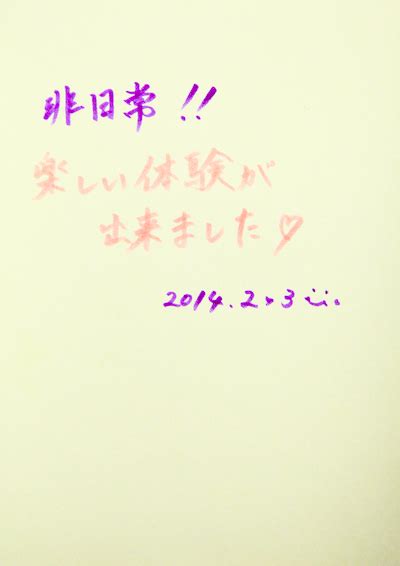 非日常!!
楽しい体験が
出来ました♡
2014.2.3